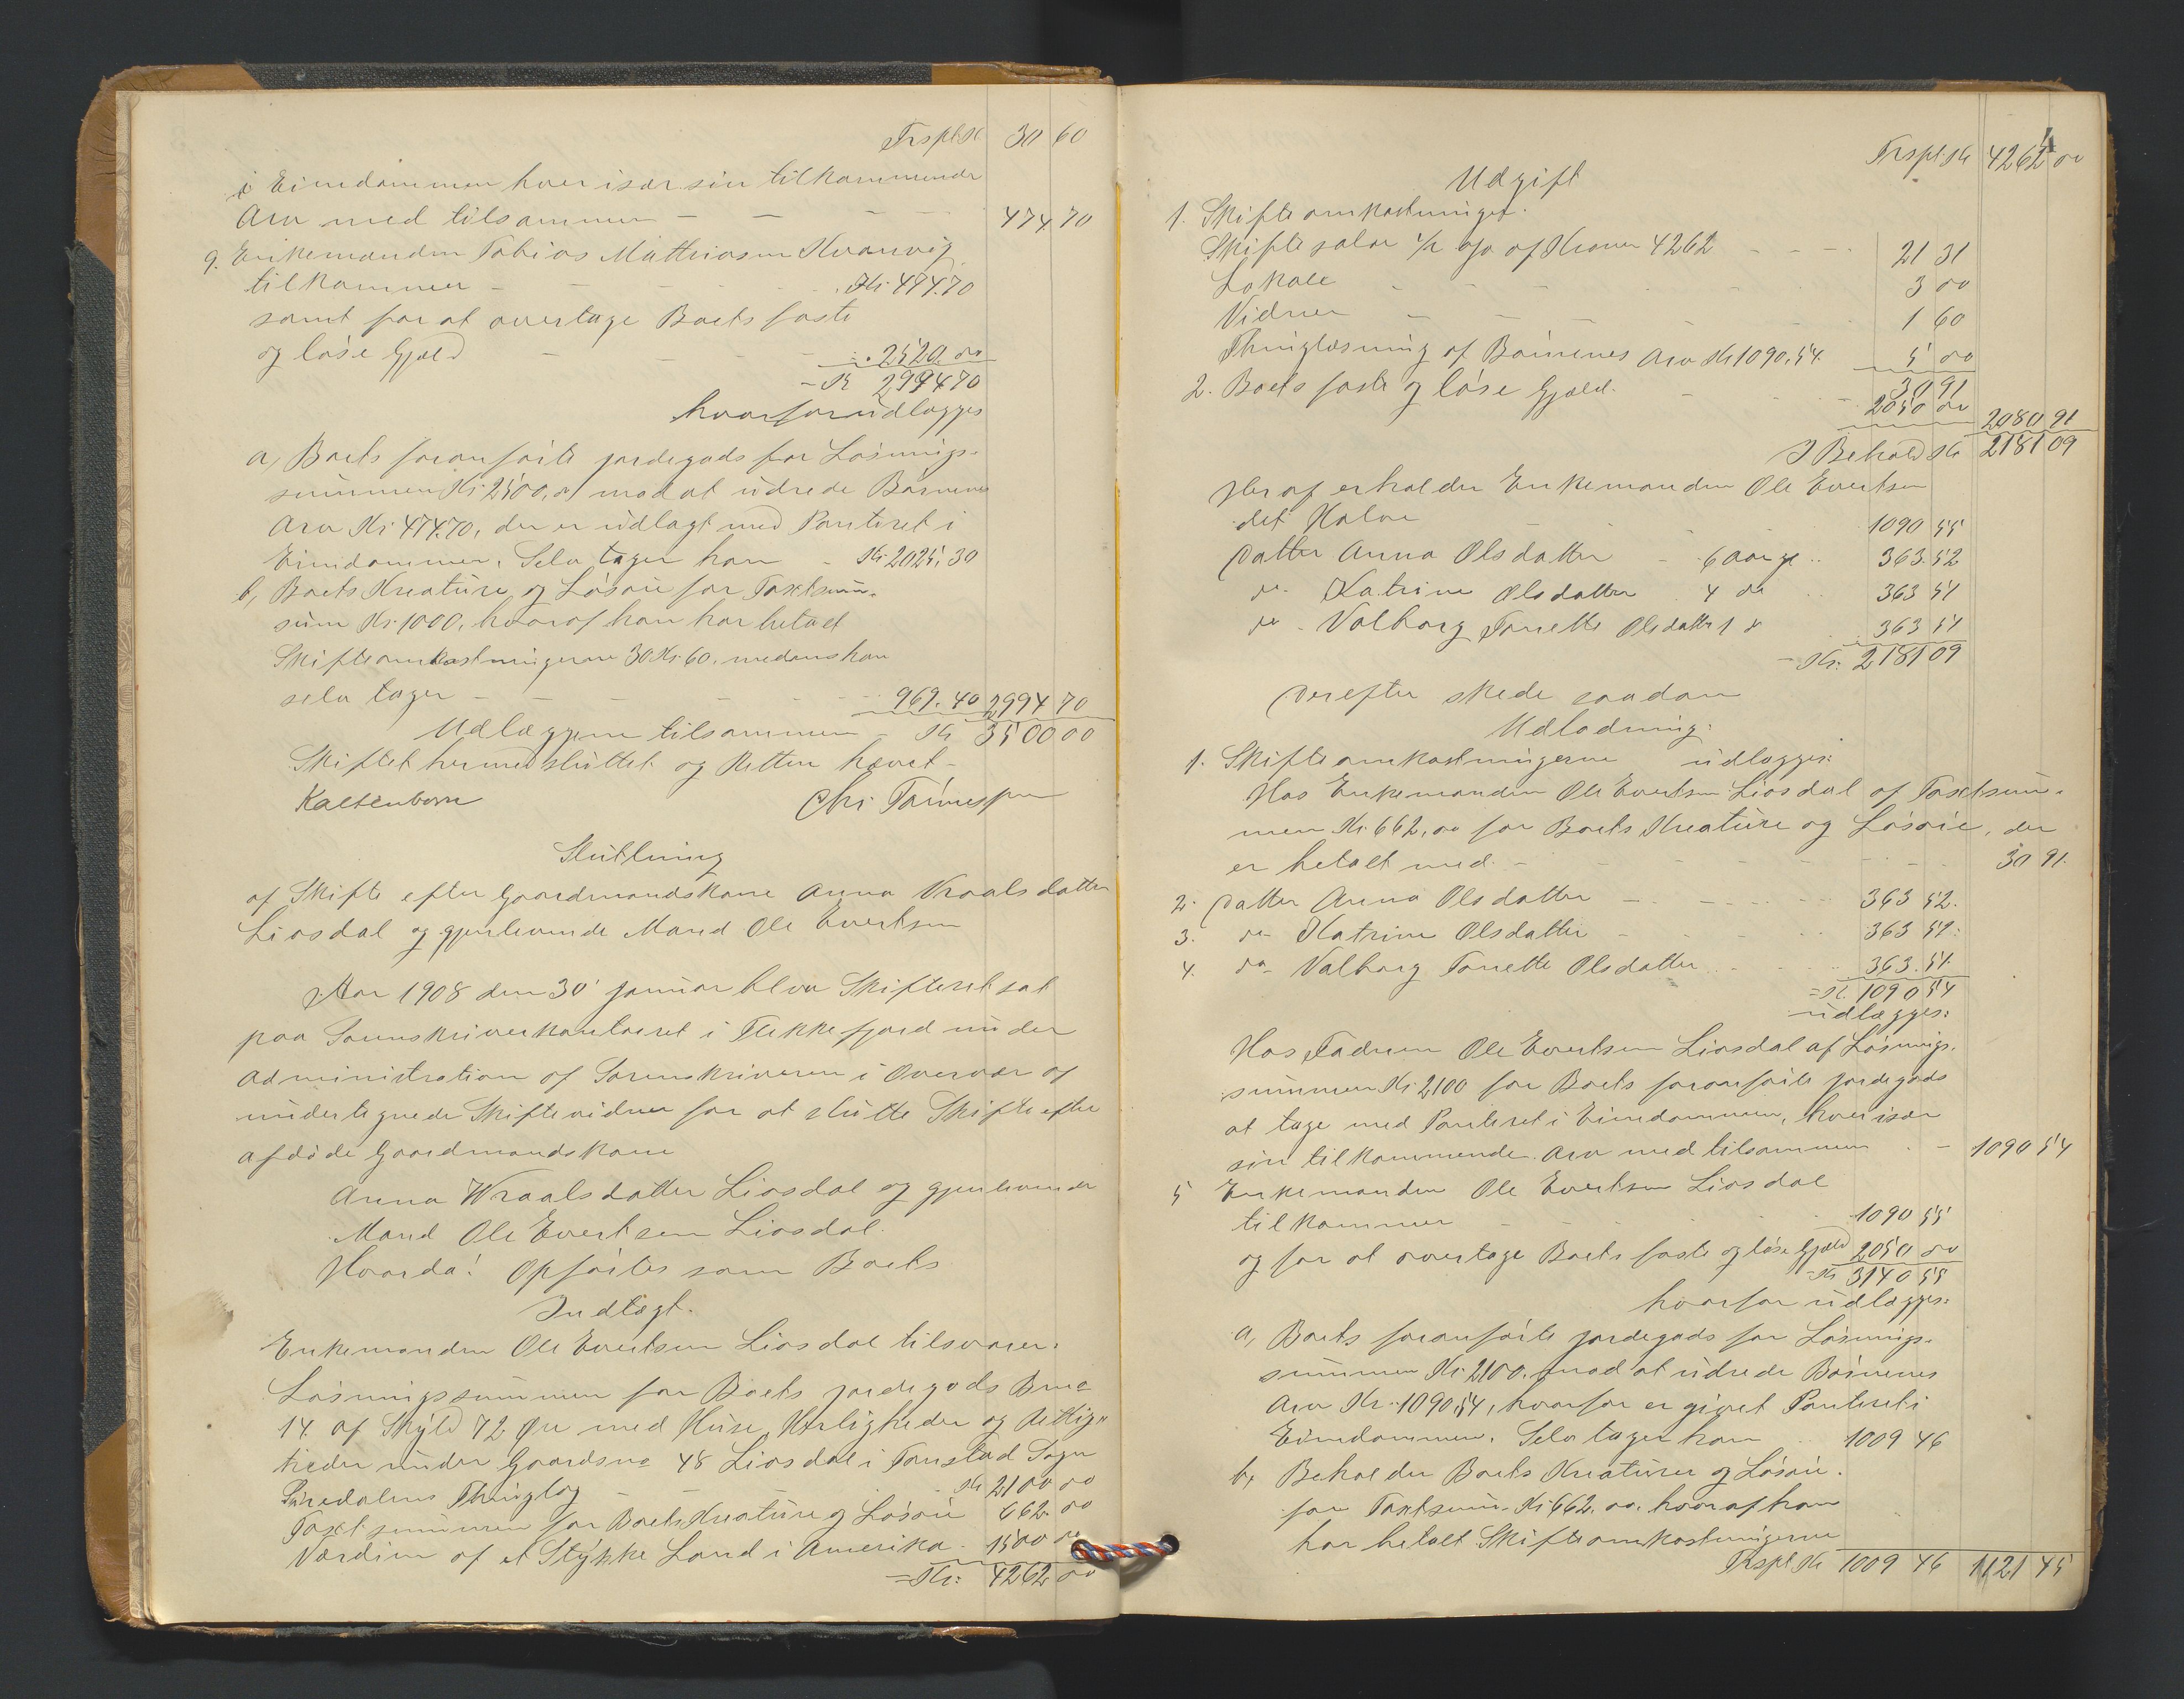 Trspt. Kr 30 60
i Eiendommen hver især sin tilkommende
Arv med tilsammen - - - - 474 70
9. Enkemanden Tobias Mathiasen Kvanvig
tilkommer - - - - Kr. 474.70
samt for at overtage Boets faste
og løse Gjæld - - - 2520.00
= Kr 2994.70
hvorfor udlægges
a, Boets foranførte jordegods for Løsnings-
summen Kr. 2500,00 mod at udrede Børnenes
Arv Kr. 474.70, der er udlagt med Panteret i
Eiendommen. Selv tager han - Kr. 2025.30
b, Boets Kreature og Løsøre for Taxtsum-
sum Kr. 1000, hvoraf han har betalt
Skifteomkostningerne 30 Kr. 60, medens han
selv tager - - - - 969.40 2994 70
Udlæggene tilsammen - Kr 3500 00
Skiftet hermed sluttet og Retten hævet -
Kaltenborn Chr. Tønnesen
Slutning
af Skifte efter Gaardmandskone Anna Vraalsdatter
Liosdal og gjenlevende Mand Ole Evertsen
Aar 1908 den 30' januar blev Skifteret sat
paa Sorenskriverkontoret i Flekkefjord under
Administration af Sorenskriveren i Overvær af
undertegnede Skiftevidner for at slutte Skifte efter
afdøde Gaardmandskone
Anna Wraalsdatter Liosdal og gjenlevende
Mand Ole Evertsen Liosdal.
Hvorda! Opførtes som Boets
Indtægt.
Enkemanden Ole Evertsen Liosdal tilsvarer:
Løsningssummen for Boets jordegods Bno
14 af Skyld 72 Øre med Huse, Herligheder og Rettig-
heder under Gaardsno 48 Liosdal i Tonstad Sogn
Siredalens Thinglag - Kr 2100 00
Taxtsummen for Boets Kreature og Løsøre 662.00
Værdien af et Stykke Land i Amerika - 1500 00
= Kr: 4262 00
4
Trspt. Kr 4262 00
Udgift
1. Skifteomkostninger.
Skiftesalær 1/2 o/o af Kroner 4262 - - - 21 31
Lokale - - - - 3 00
Vidner - - - - 1 60
Thinglæsning af Børnenes Arv Kr 1090.54 5 00
30 91
2. Boets faste og løse Gjæld. - - - 2050 00 2080 91
I Behold Kr 2181 09
Heraf erholder Enkemanden Ole Evertsen
det Halve 1090 55
Datter Anna Olsdatter - 6 Aar gl. .. 363.52
do - Katrine Olsdatter 4 do .. 363 51
do - Valborg Tonette Olsdatter 1 do 363 51
= Kr: 2181 09
Derefter skede saadan
Udlodning:
1. Skifteomkostningerne udlægges:
Hos Enkemanden Ole Evertsen Liosdal af Taxtsum-
men Kr. 662,00 for Boets Kreature og Løsøre, der
er betalt med. - - - - 30 91.
2. Datter Anna Olsdatter - - - - 363 52.
3. do - Katrine Olsdatter - - - 363 51.
4. do - Valborg Tonette Olsdatter - - - 363.51.
= Kr. 1090 54
udlægges:
Hos Faderen Ole Evertsen Liosdal af Løsnings-
summen Kr. 2100 for Boets foranførte jordegods
at tage med Panteret i Eiendommen, hver især
sin tilkommende Arv med tilsammen - 1090 54
5 Enkemanden Ole Evertsen Liosdal
tilkommer - - - - 1090 55
og for at overtage Boets faste og løse Gjæld 2050 00
= Kr 3140 55
hvorfor udlægges:
a, Boets foranførte jordegods for Løsnings-
summen Kr. 2100. mod at udrede Børnenes
Arv Kr. 1090.54, hvorfor er givet Panteret i
Eiendommen. Selv tager han 1009 46
b, Beholder Boets Kreaturer og Løsøre.
for Taxtsum Kr. 662.00. hvoraf han
har betalt Skifteomkostningerne
Trspt. Kr 1009 46 1121 45